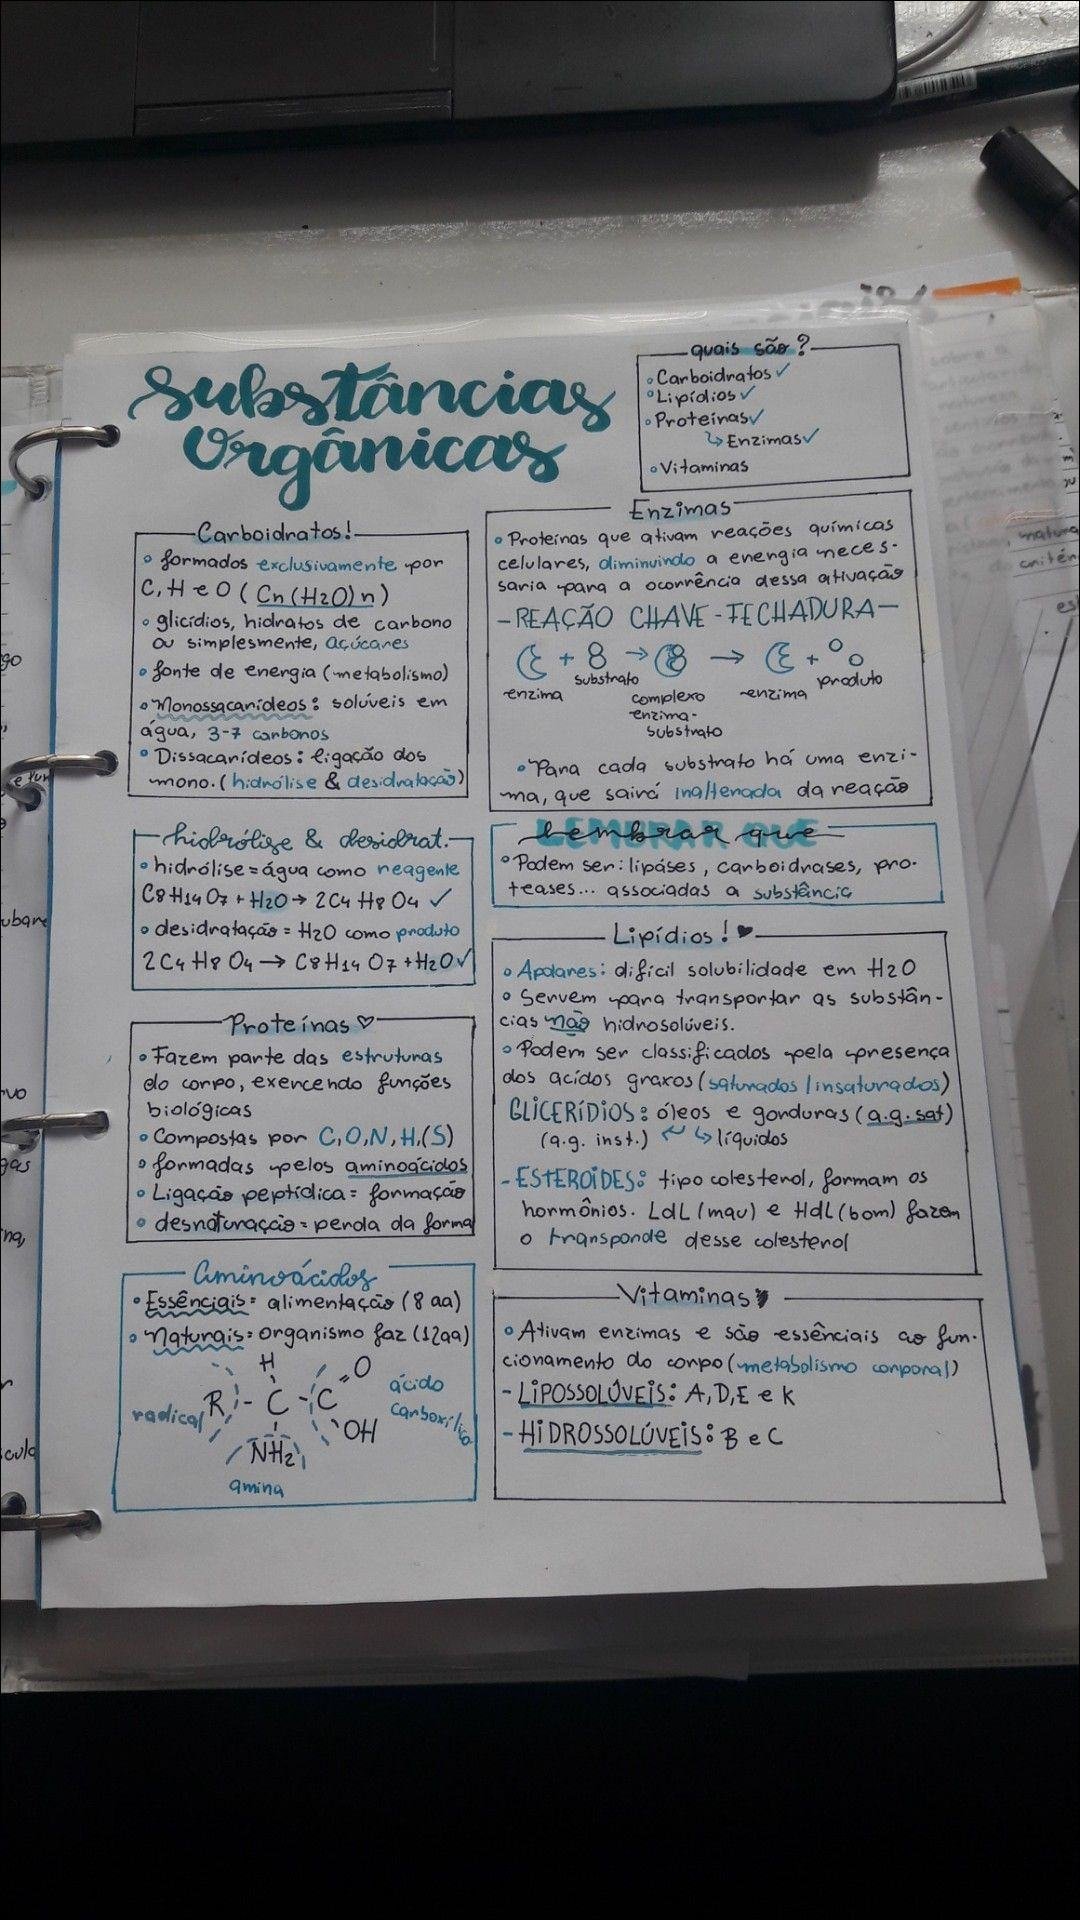 Substâncias
Orgânicas
quais são?
Carboidratos ✓
Lipídios ✓
Proteínas ✓
↳ Enzimas ✓
Vitaminas
Carboidratos!
formados exclusivamente por
C, H e O (Cn(H2O)n)
glicídios, hidratos de carbono
ou simplesmente, açúcares
fonte de energia (metabolismo)
Monossacarídeos: solúveis em
água, 3-7 carbonos
Dissacarídeos: ligação dos
mono. (hidrólise & desidratação)
hidrólise & desidrat.
hidrólise = água como reagente
C8H14O7 + H2O → 2C4H8O4 ✓
desidratação = H2O como produto
2C4H8O4 → C8H14O7 + H2O ✓
Proteínas ♡
Fazem parte das estruturas
do corpo, exercendo funções
biológicas
Compostas por C,O,N,H,(S)
formadas pelos aminoácidos
Ligação peptídica = formação
desnaturação = perda da forma
aminoácidos
Essênciais = alimentação (8 aa)
Naturais = organismo faz (12aa)
H
R - C - C = O
OH
NH2
radical
ácido
carboxílico
amina
Enzimas
Proteínas que ativam reações químicas
celulares, diminuindo a energia neces-
saria para a ocorrência dessa ativação
- REAÇÃO CHAVE - FECHADURA -
enzima + substrato → complexo
enzima-
substrato → enzima + produto
Para cada substrato há uma enzi-
ma, que sairá inalterada da reação
LEMBRAR QUE
lembrar que
Podem ser: lipáses, carboidrases, pro-
teases... associadas a substância
Lipídios! ♥
Apolares: difícil solubilidade em H2O
Servem para transportar as substân-
cias não hidrosolúveis.
Podem ser classificados pela presença
dos acidos graxos (saturados/insaturados)
GLICERÍDIOS: óleos e gorduras (a.g. sat)
(a.g. inst.) ↲ ↳ líquidos
- ESTEROÍDES: tipo colesterol, formam os
hormônios. LdL (mau) e HdL (bom) fazem
o transponde desse colesterol
Vitaminas ♥
Ativam enzimas e são essênciais ao fun-
cionamento do corpo (metabolismo corporal)
- LIPOSSOLÚVEIS: A, D, E e K
- HIDROSSOLÚVEIS: B e C